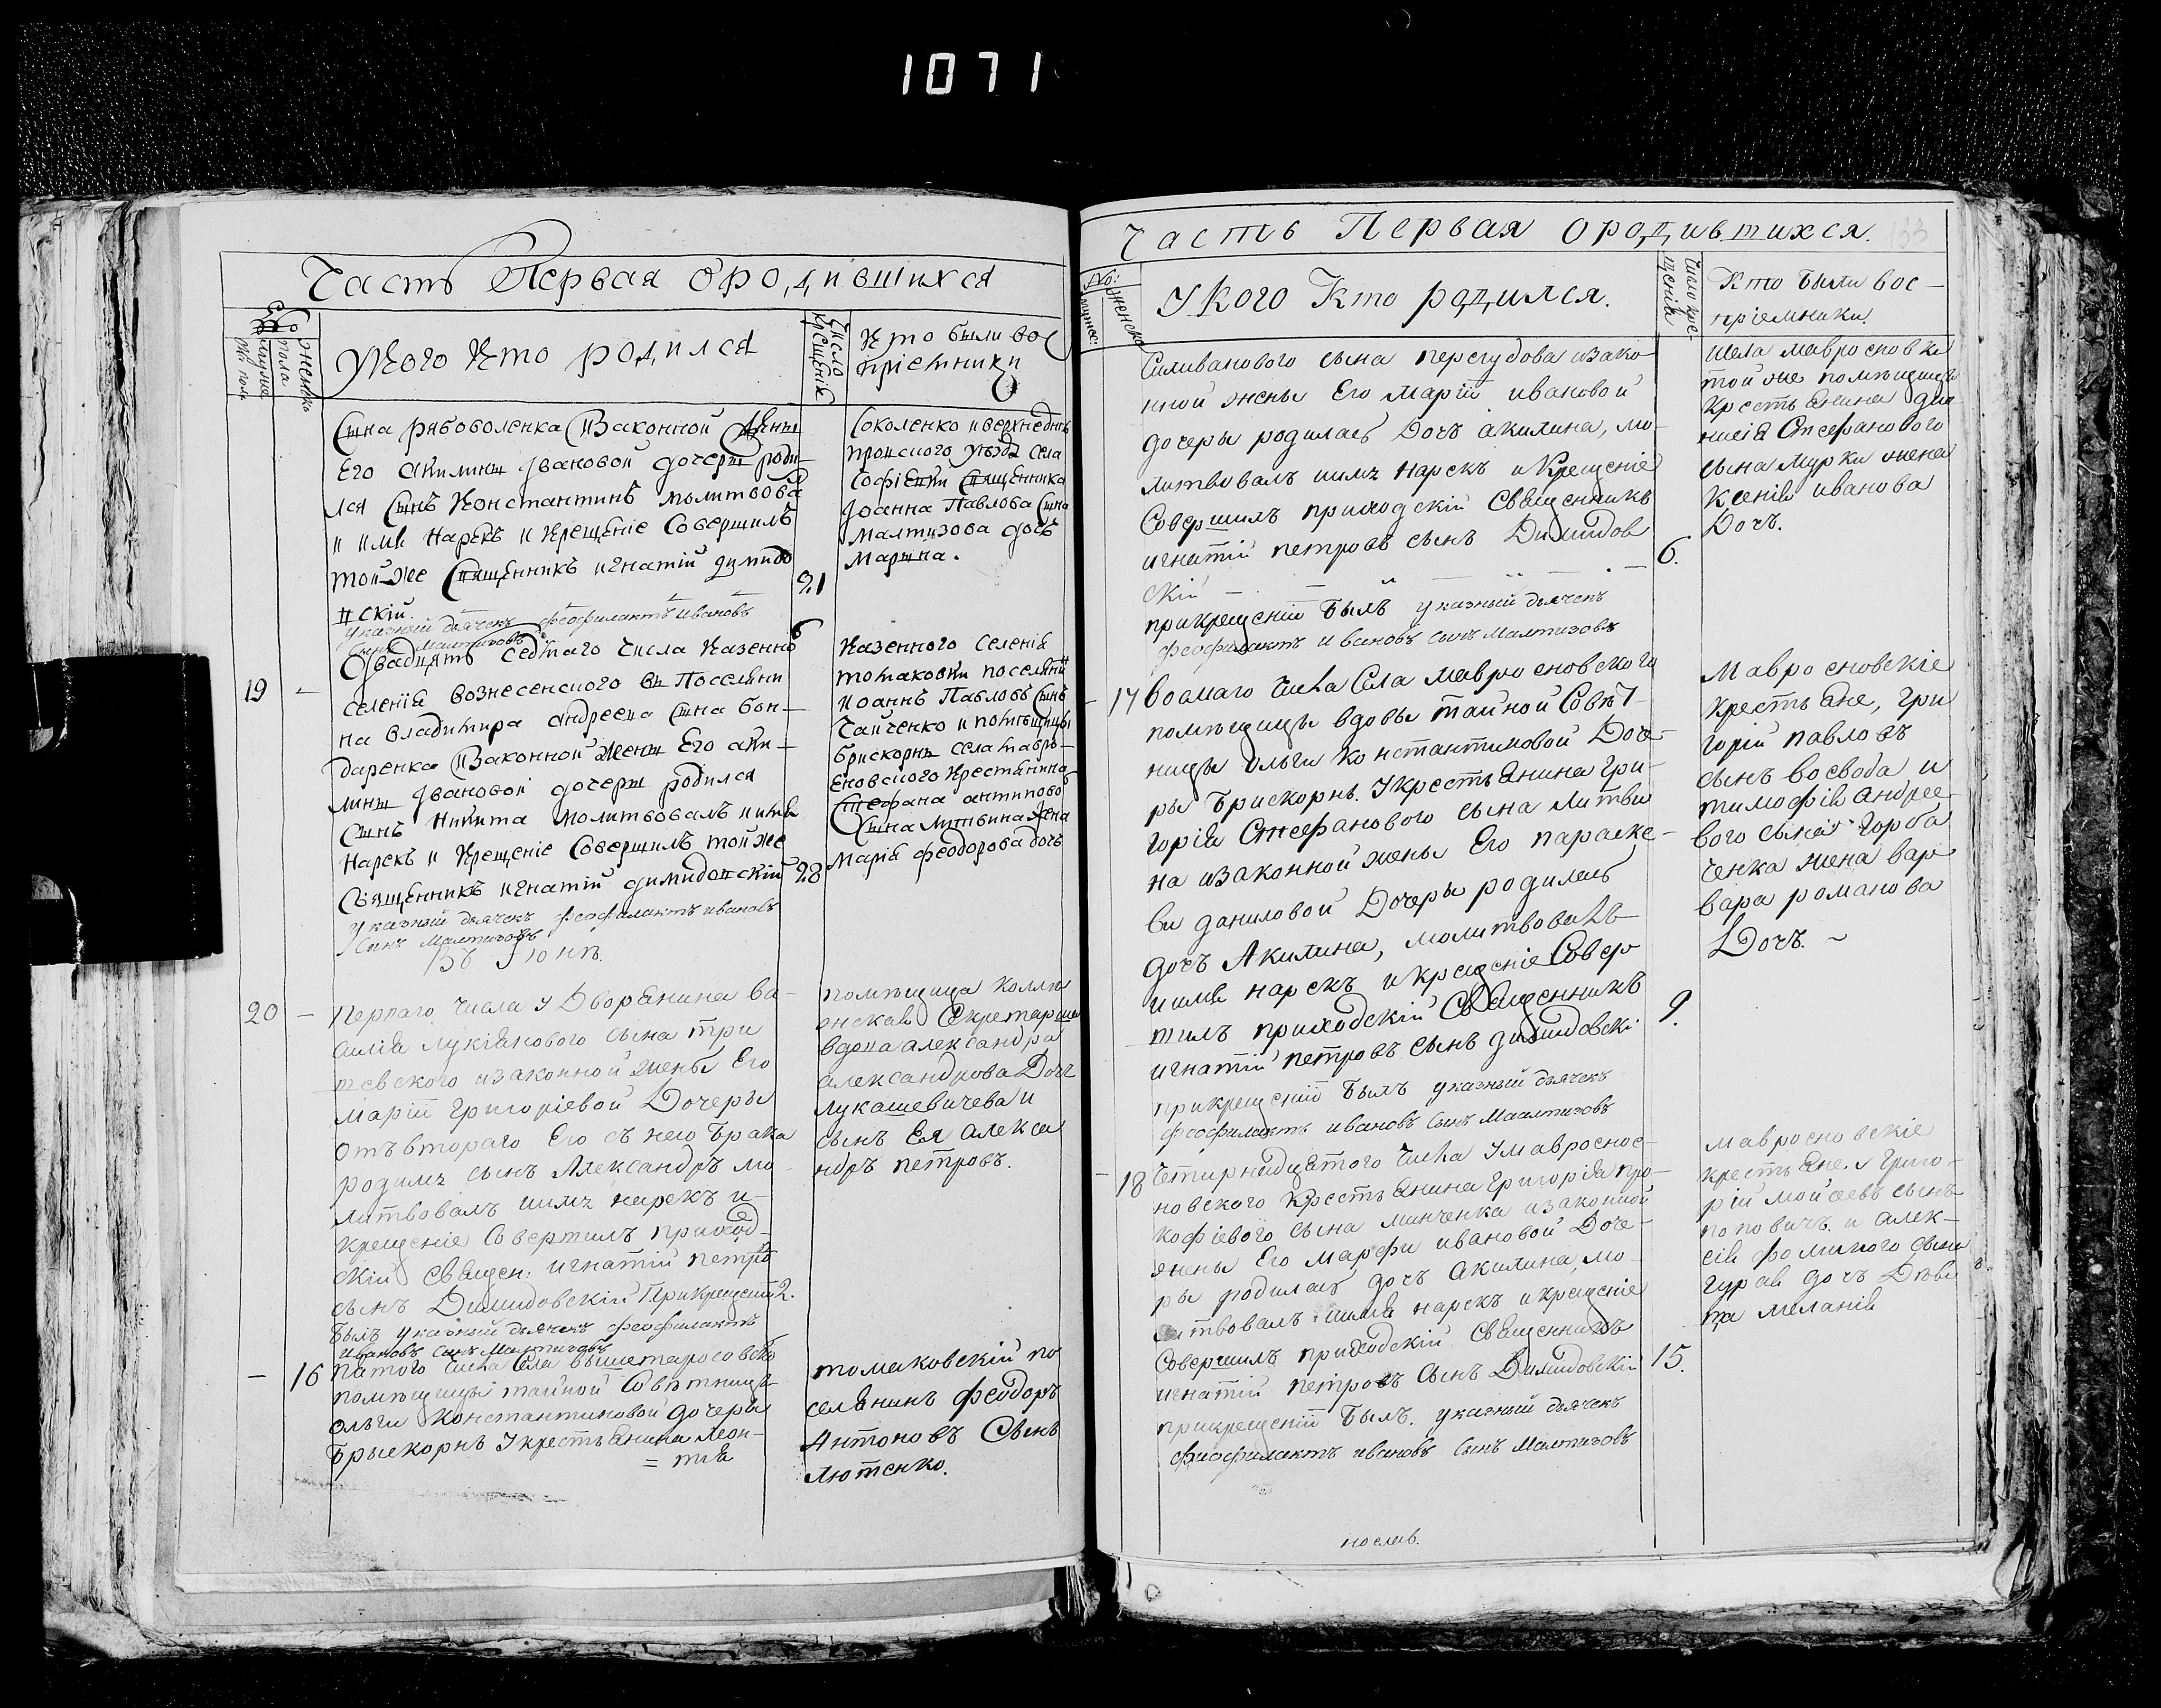 1071
Часть Первая Ородившихся
Укого Кто родился
Число крещенія
Кто были вос
пріемники
Сына Рябоволенка Изаконной Жены
Его акилины Івановой дочеры роди
лся Сынъ Константинъ молитвова
и имя Нарекъ и Крещеніе Совершилъ
той-же Священникъ игнатій димидо
вскій.
21
указный дьячекъ феофилактъ ивановъ
сынъ Малтизовъ
Соколенко и верхнеднѣ
провского уѣзда села
Софіевки Священника
Іоанна Павлова Сына
Малтизова дочь
Марина.
19 -
Двадцять седмаго числа Казенно
селенія вознесенского Поселяни
на владимира андреева Сына бон-
даренка Изаконной Жены Его аки-
лины Івановой дочеры родился
Сынъ Никита молитвовалъ и имя
Нарекъ и Крещеніе Совершилъ той же
Священникъ игнатій димидовскій
28
указный дьячекъ феофилактъ ивановъ
Сынъ Малтизовъ
Казенного Селенія
томаковки поселянин
Иоаннъ Павловъ Сынъ
Чайченко и помѣщицы
брискорнъ села мавро-
еновского Крестянина
Стефана антипово
Сына Литвина Жена
Марія феодорова дочь
Въ Іюнѣ.
20 -
Перваго Числа У Дворянина Ва-
силія лукіянового сына три
шевского изаконной жены Его
маріи григоріевой Дочеры
отъ втораго Его съ нею Брака
родилъ сынъ Александръ мо-
литвовалъ иимя нарекъ и-
крещеніе Совершилъ приход-
скій Священ: игнатій петро
сынъ Димидовскій Прикрещеніи
2.
былъ указный дьячекъ феофилактъ
Ивановъ сынъ Малтизовъ
помѣщица колле
жская Секретарша
вдова александра
александрова Доч
лукашевичева и
сынъ Ея Алекса
ндръ петровъ.
- 16
Пятого Числа Села вышетарасовско
помѣщицы тайной Совѣтницы
ольги константиновой дочеры
Брыскорнъ Укрестьянина Леон-
= тія
томаковскій по
селянинъ феодоръ
Антоновъ Сынъ
Лютенко.
Часть Первая Ородившихся.
133
Укого Кто родился.
Число кре-
щенія
Кто были вос-
пріемники.
Силиванового сына пересудова изако-
нной жены Его маріи ивановой
дочеры родилась Дочъ акилина, мо-
литвовалъ иимя нарекъ и Крещеніе
Совершилъ приходскій Священникъ
игнатій петровъ сынъ Димидов
скій
6.
прикрещеніи былъ указный дьячекъ
феофилактъ ивановъ сынъ Малтизовъ
мавроеновки
той же помѣщицы
крестьянина Дио
нисія Стефанового
сына мурки жена
Ксенія иванова
Дочъ.
- 17
восмаго Числа Села мавроеновского
помѣщицы вдовы тайной Совѣт-
ницы ольги константиновой Доче-
ры Брискорнъ. Укрестьянина гри-
горія Стефанового сына литви
на изаконной жены Его параске-
ви даниловой Дочеры родилась
дочъ Акилина, молитвовалъ
иимя нарекъ и крещеніе Совер
шилъ приходскій Священникъ
игнатій петровъ сынъ димидовскі
9.
прикрещеніи былъ указный дьячекъ
феофилактъ ивановъ Сынъ Малтизовъ
мавроеновскіе
крестьяне, гри
горій павловъ
сынъ воевода и
тимофія андрее
вого сына горба
ченка жена вар
вара романова
Дочъ. ~
- 18
Четирнадцятого Числа Умаврое-
новского крестьянина григорія про-
кофіевого сына минченка изаконной
жены Его марфи ивановой Доче-
ры родилась дочъ акилина, мо-
литвовалъ иимя нарекъ и крещеніе
Совершилъ приходскій Священникъ
игнатій петровъ Сынъ Димидовскій
15.
прикрещеніи былъ. указный дьячекъ
феофилактъ ивановъ Сынъ Малтизовъ
мавроеновскіе
крестьяне. григо-
рій мойсеевъ сынъ
поповичъ. и алек-
сія фомичого сына
дочъ Дѣви
ца меланія